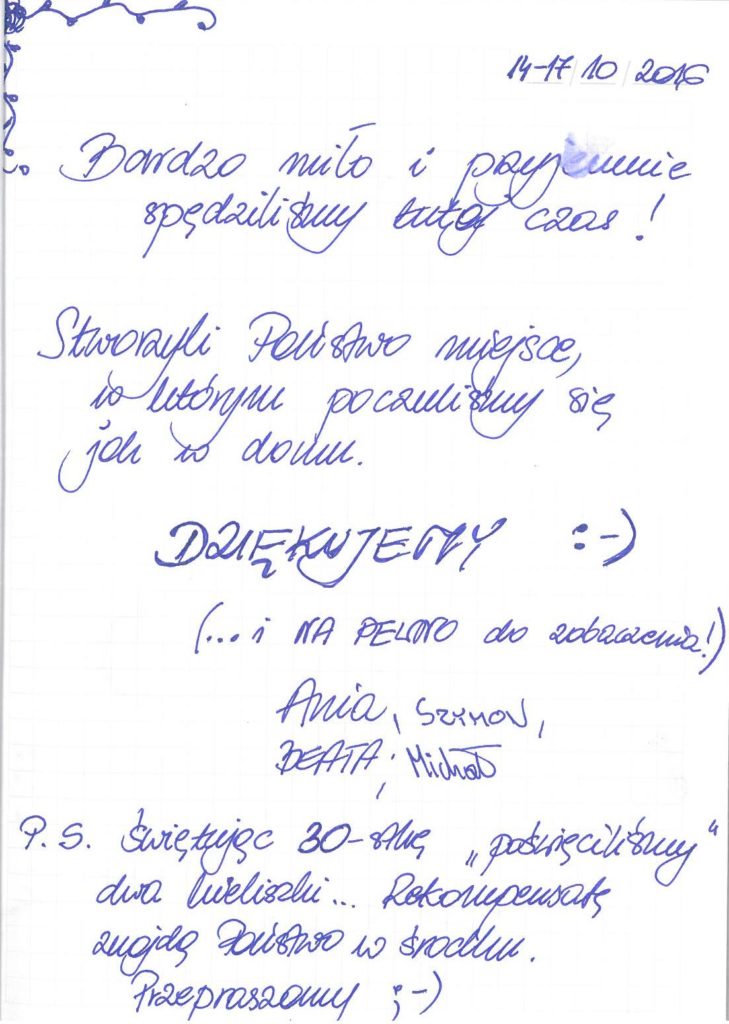 14-17/10/2016
Bardzo miło i przyjemnie
spędziliśmy tutaj czas!
Stworzyli Państwo miejsce,
w którym poczuliśmy się
jak w domu.
DZIĘKUJEMY :-)
(...i NA PEWNO do zobaczenia!)
Ania, SZYMON,
BEATA, Michał
P.S. Świętując 30-stkę „poświęciliśmy"
dwa kieliszki... Rekompensatę
znajdą Państwo w środku.
Przepraszamy ;-)